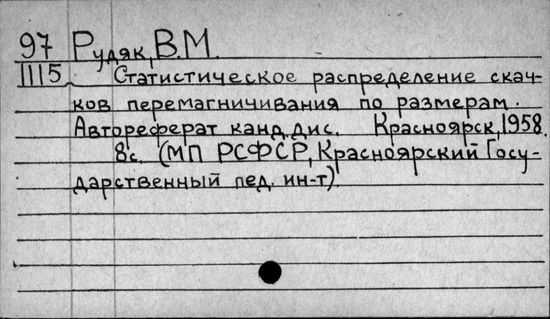 97 Рудяк, В.М.
1115 Статистическое распределение скач-
ков перемагничивания по размерам.
Автореферат канд. дис. Красноярск, 1958.
8с. (МП РСФСР, Красноярский Госу-
дарственный пед. ин-т).